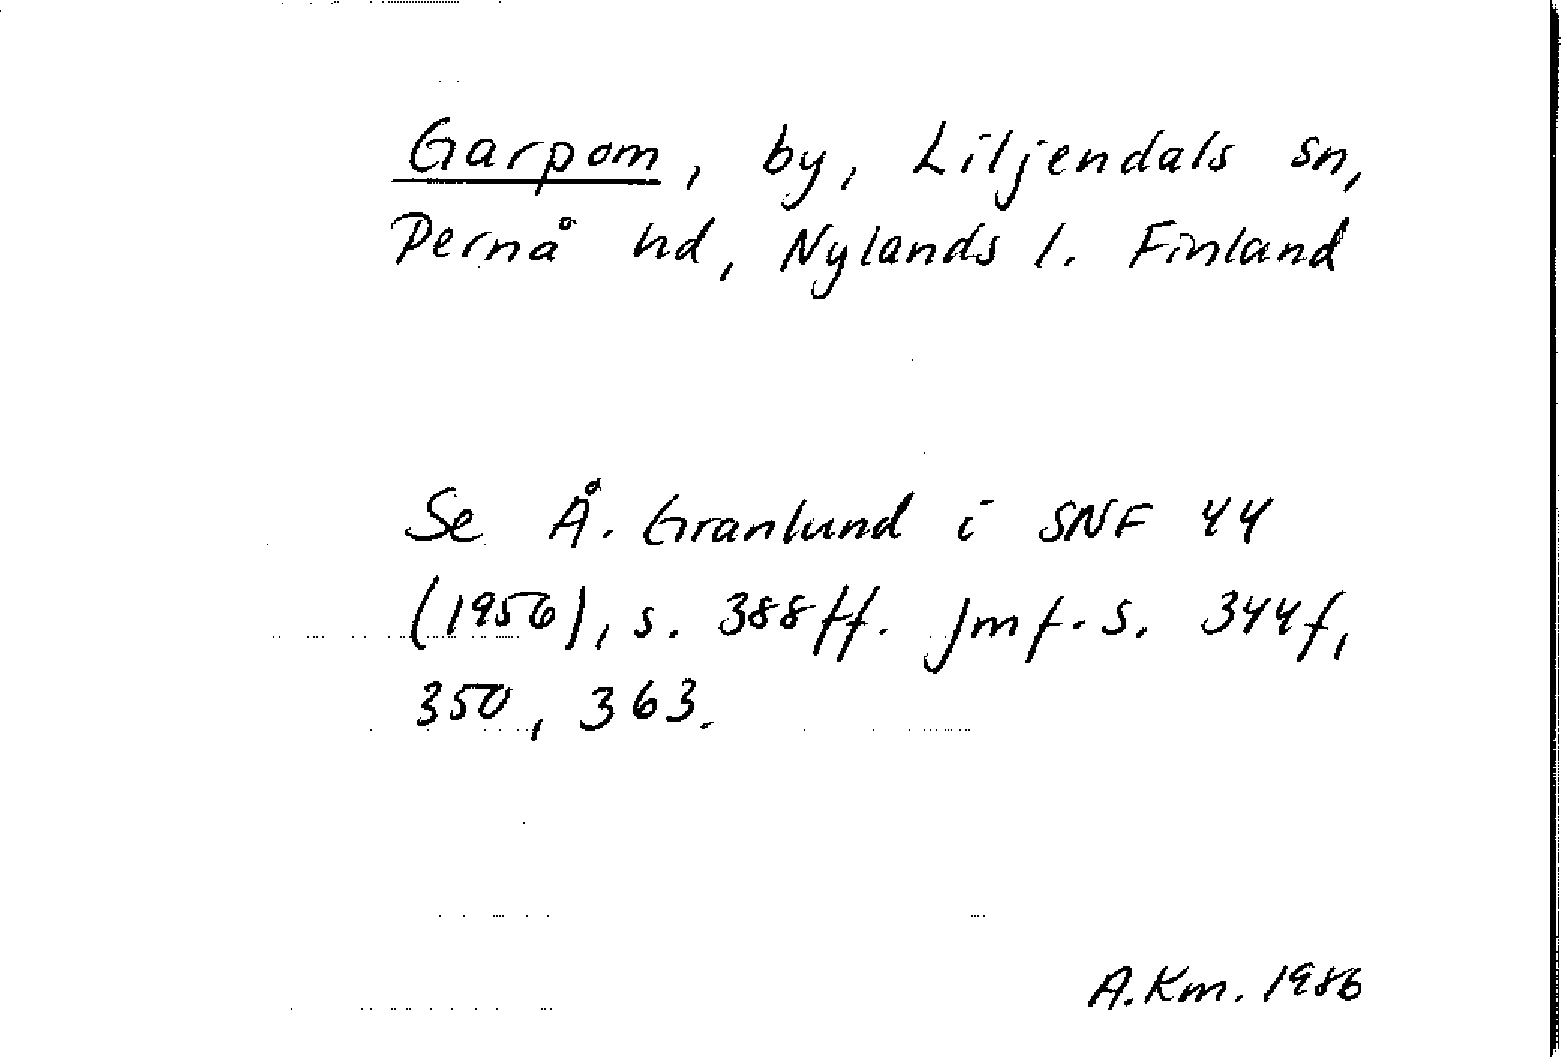 Garpom, by, Liljendals sn,
Pernå hd, Nylands l. Finland
Se Å. Granlund i SNF 44
(1956), s. 388ff. Jmf. s. 344f,
350, 363.
A.Km. 1986